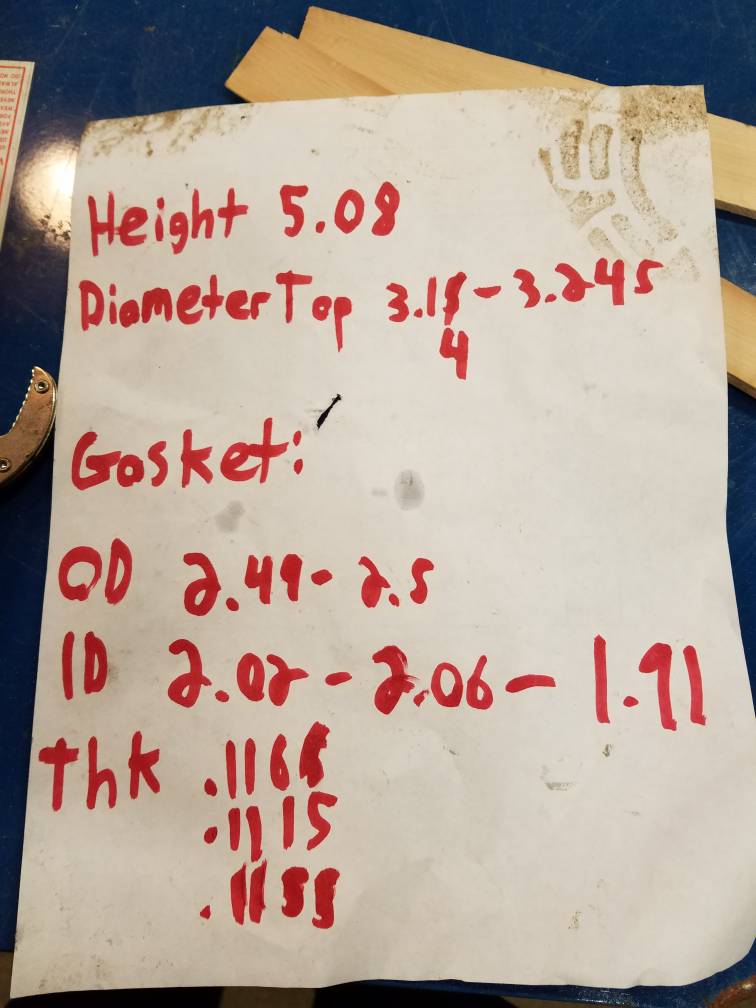 Height 5.08
Diameter Top 3.15 - 3.245
4
Gasket:
OD 2.49 - 2.5
ID 2.02 - 2.06 - 1.91
Thk .1166
.1115
.1155